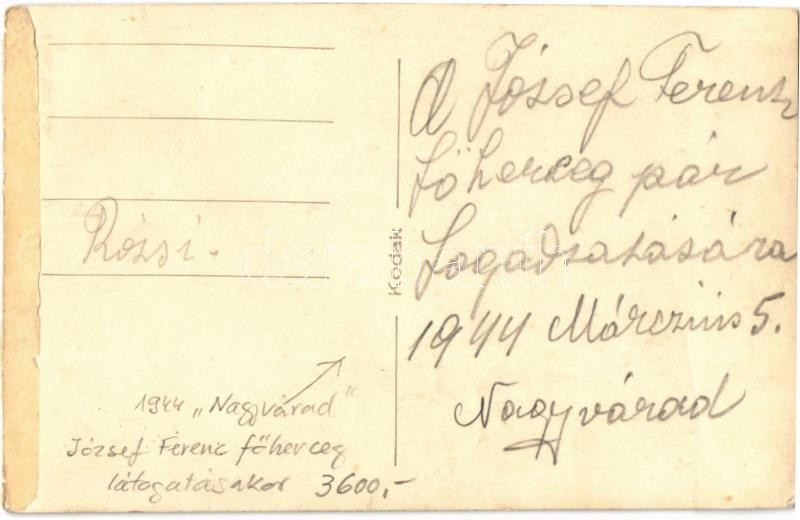 Rózsi.
1944 „Nagyvárad"
József Ferenc főherceg
látogatásakor 3600,-
Kodak
A József Ferenc
főherceg pár
fogadtatására
1944 Márczius 5.
Nagyvárad